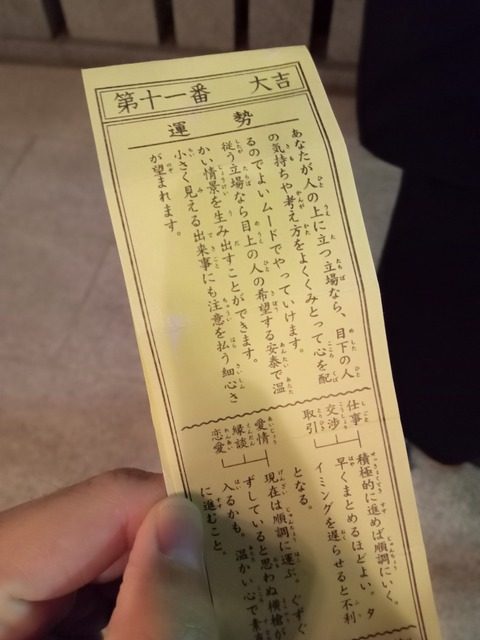 第十一番 大吉
運勢
あなたが人の上に立つ立場なら、目下の人
の気持ちや考え方をよくくみとって心を配
るのでよいムードでやっていけます。
従う立場なら目上の人の希望する安泰で温
かい情景を生み出すことができます。
小さく見える出来事にも注意を払う細心さ
が望まれます。
仕事
交渉
取引
積極的に進めば順調にいく。
早くまとめるほどよい。タ
イミングを遅らせると不利
となる。
愛情
縁談
恋愛
現在は順調に運ぶ。ぐずぐ
ずしていると思わぬ横槍が
入るかも。温かい心で素
に進むこと。